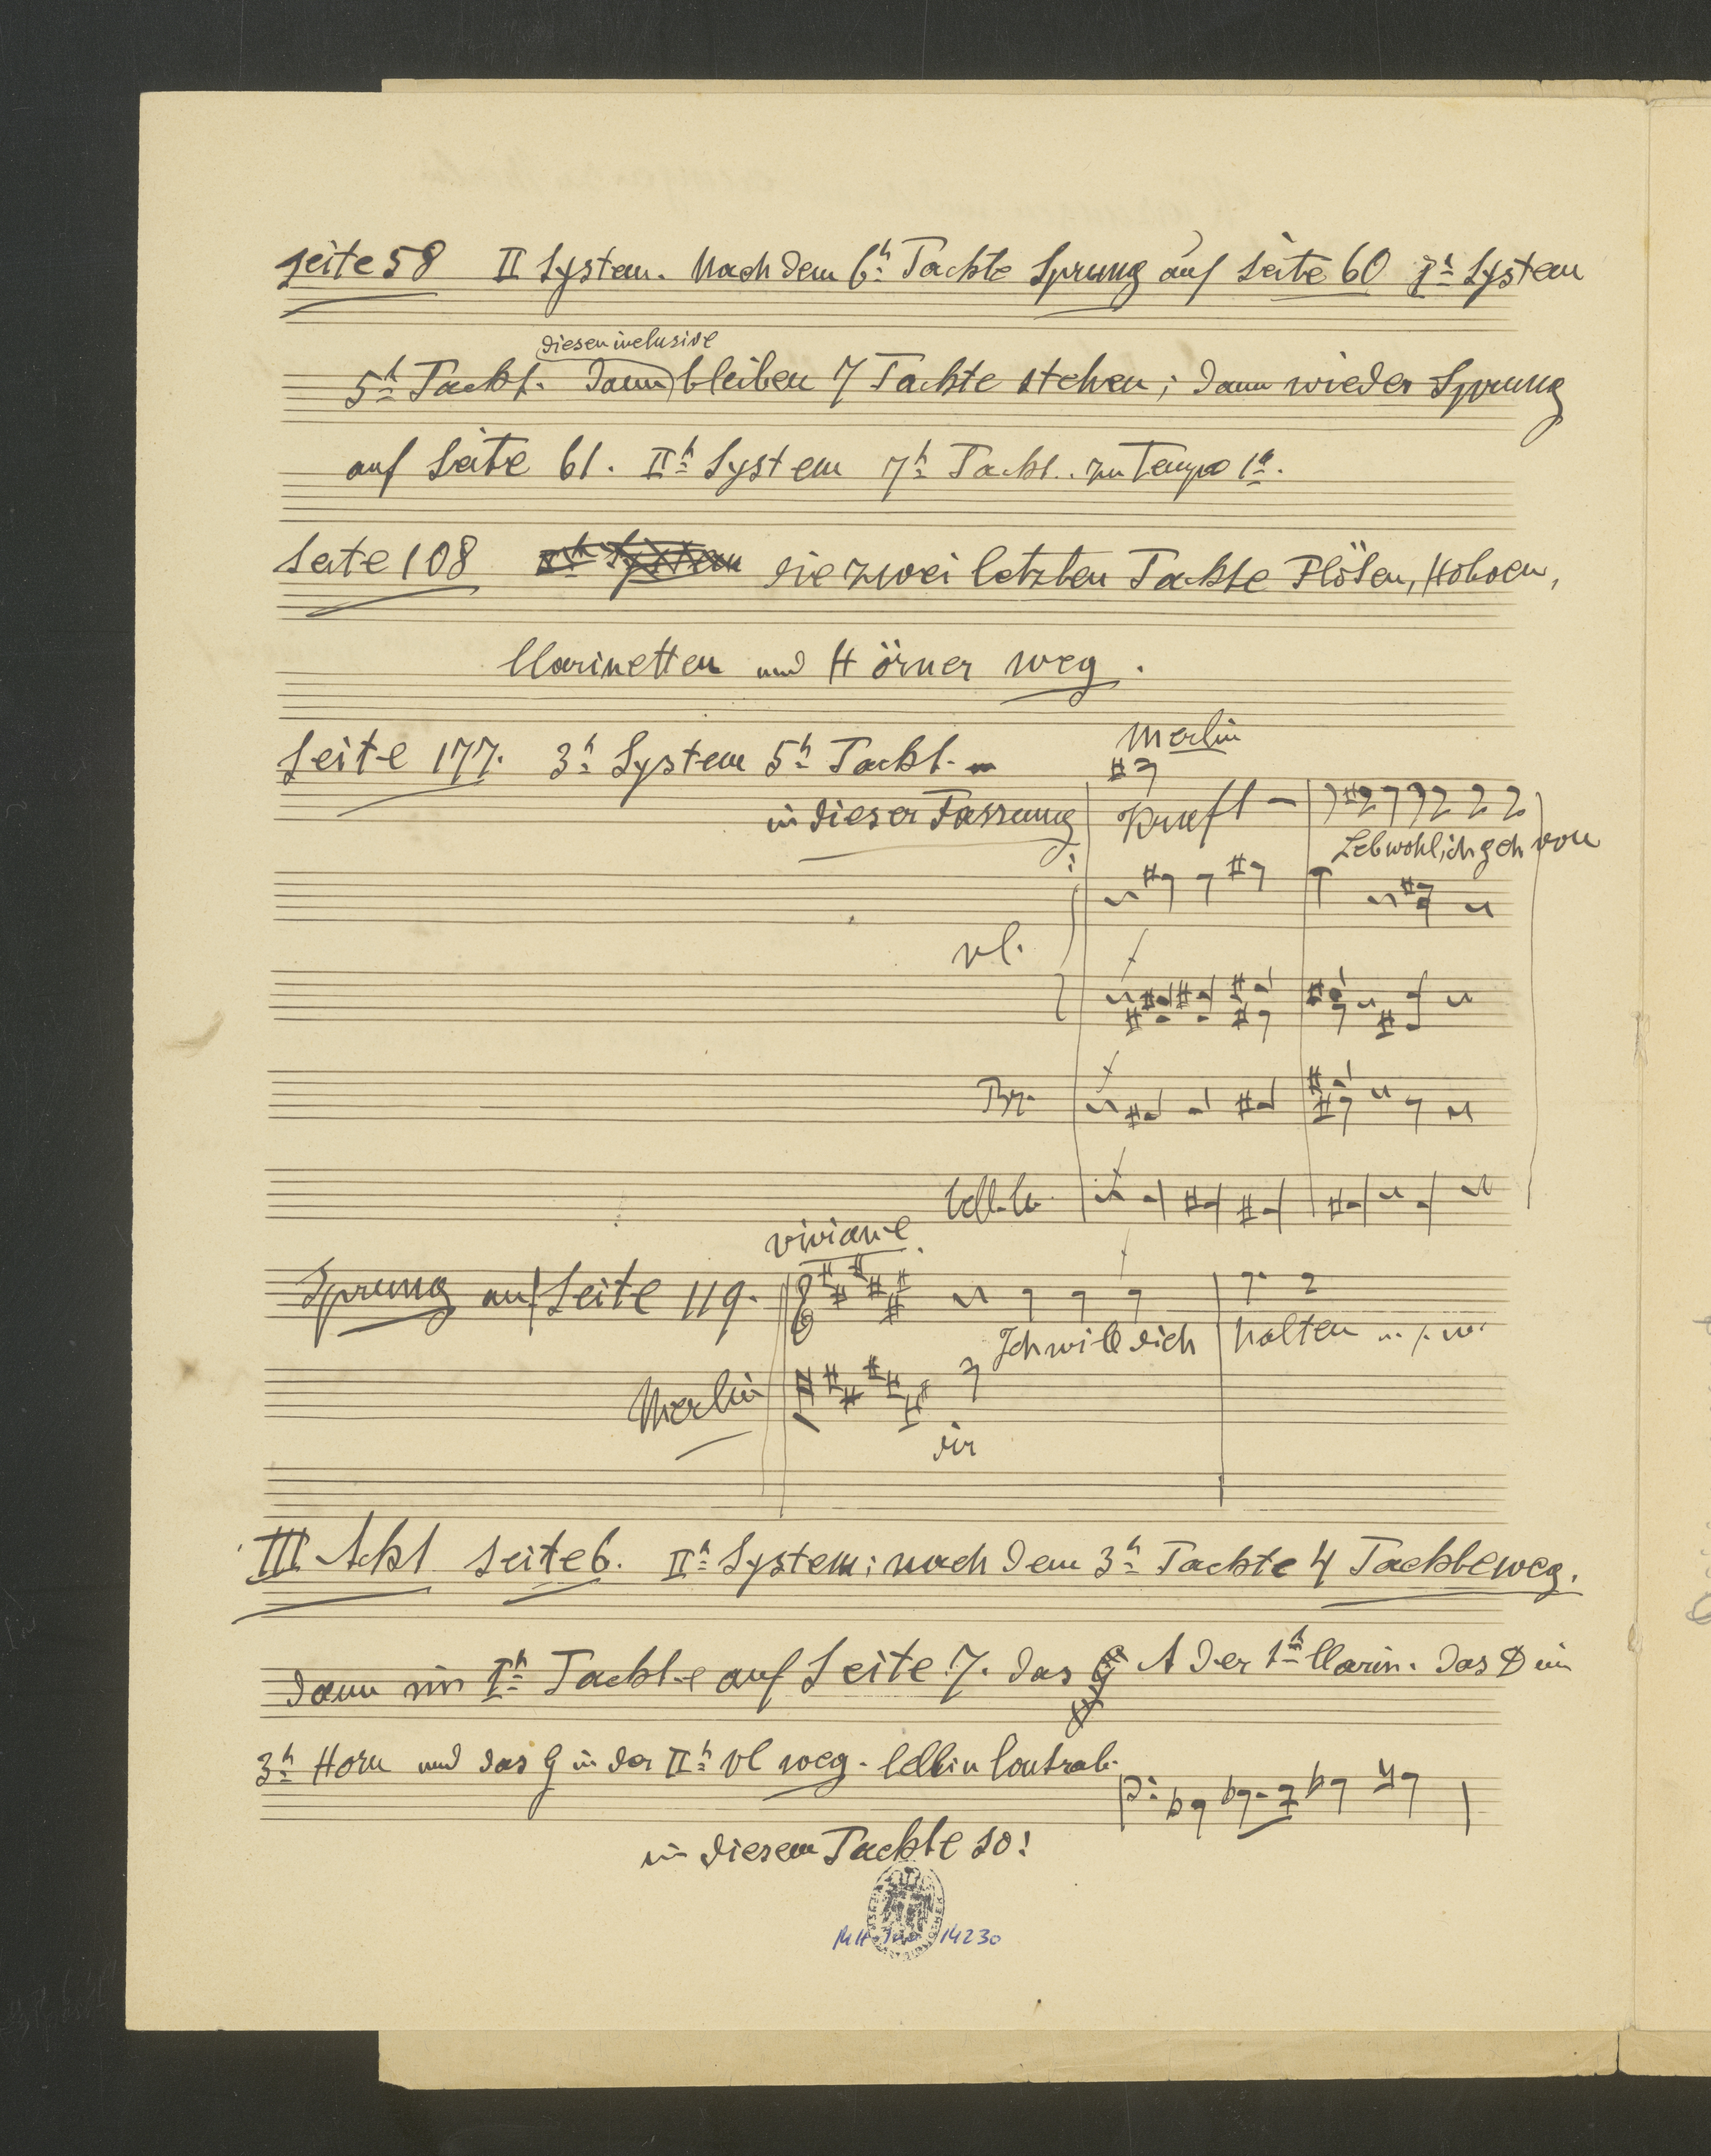 Seite 58 II System. Nach dem 6n Tackte Sprung auf Seite 60 1n System
diesen inclusive
5n Tackt. Dann bleiben 7 Tackte stehen; dann wieder Sprung
auf Seite 61. IIn System 7n Tackt. zu Tempo 1o.
Seite 108 die zwei letzten Tackte Flöten, Hoboen,
Clarinetten und Hörner weg.
Seite 177. 3n System 5n Tackt.
Merlin
in dieser Fassung:
Kraft –
Leb wohl, ich geh von
Vl.
Br.
Cell. Cb.
Viviane.
Sprung auf Seite 119.
Ich will dich halten u. s. w.
Merlin
dir
III Ackt Seite 6. IIn System; nach dem 3n Tackte 4 Tackte weg.
dann im In Tackte auf Seite 7. das A der 1n Clarin. das D im
3n Horn und das G in der IIn Vl weg. Cell u Contrab.
in diesem Tackte so!
MH 14230